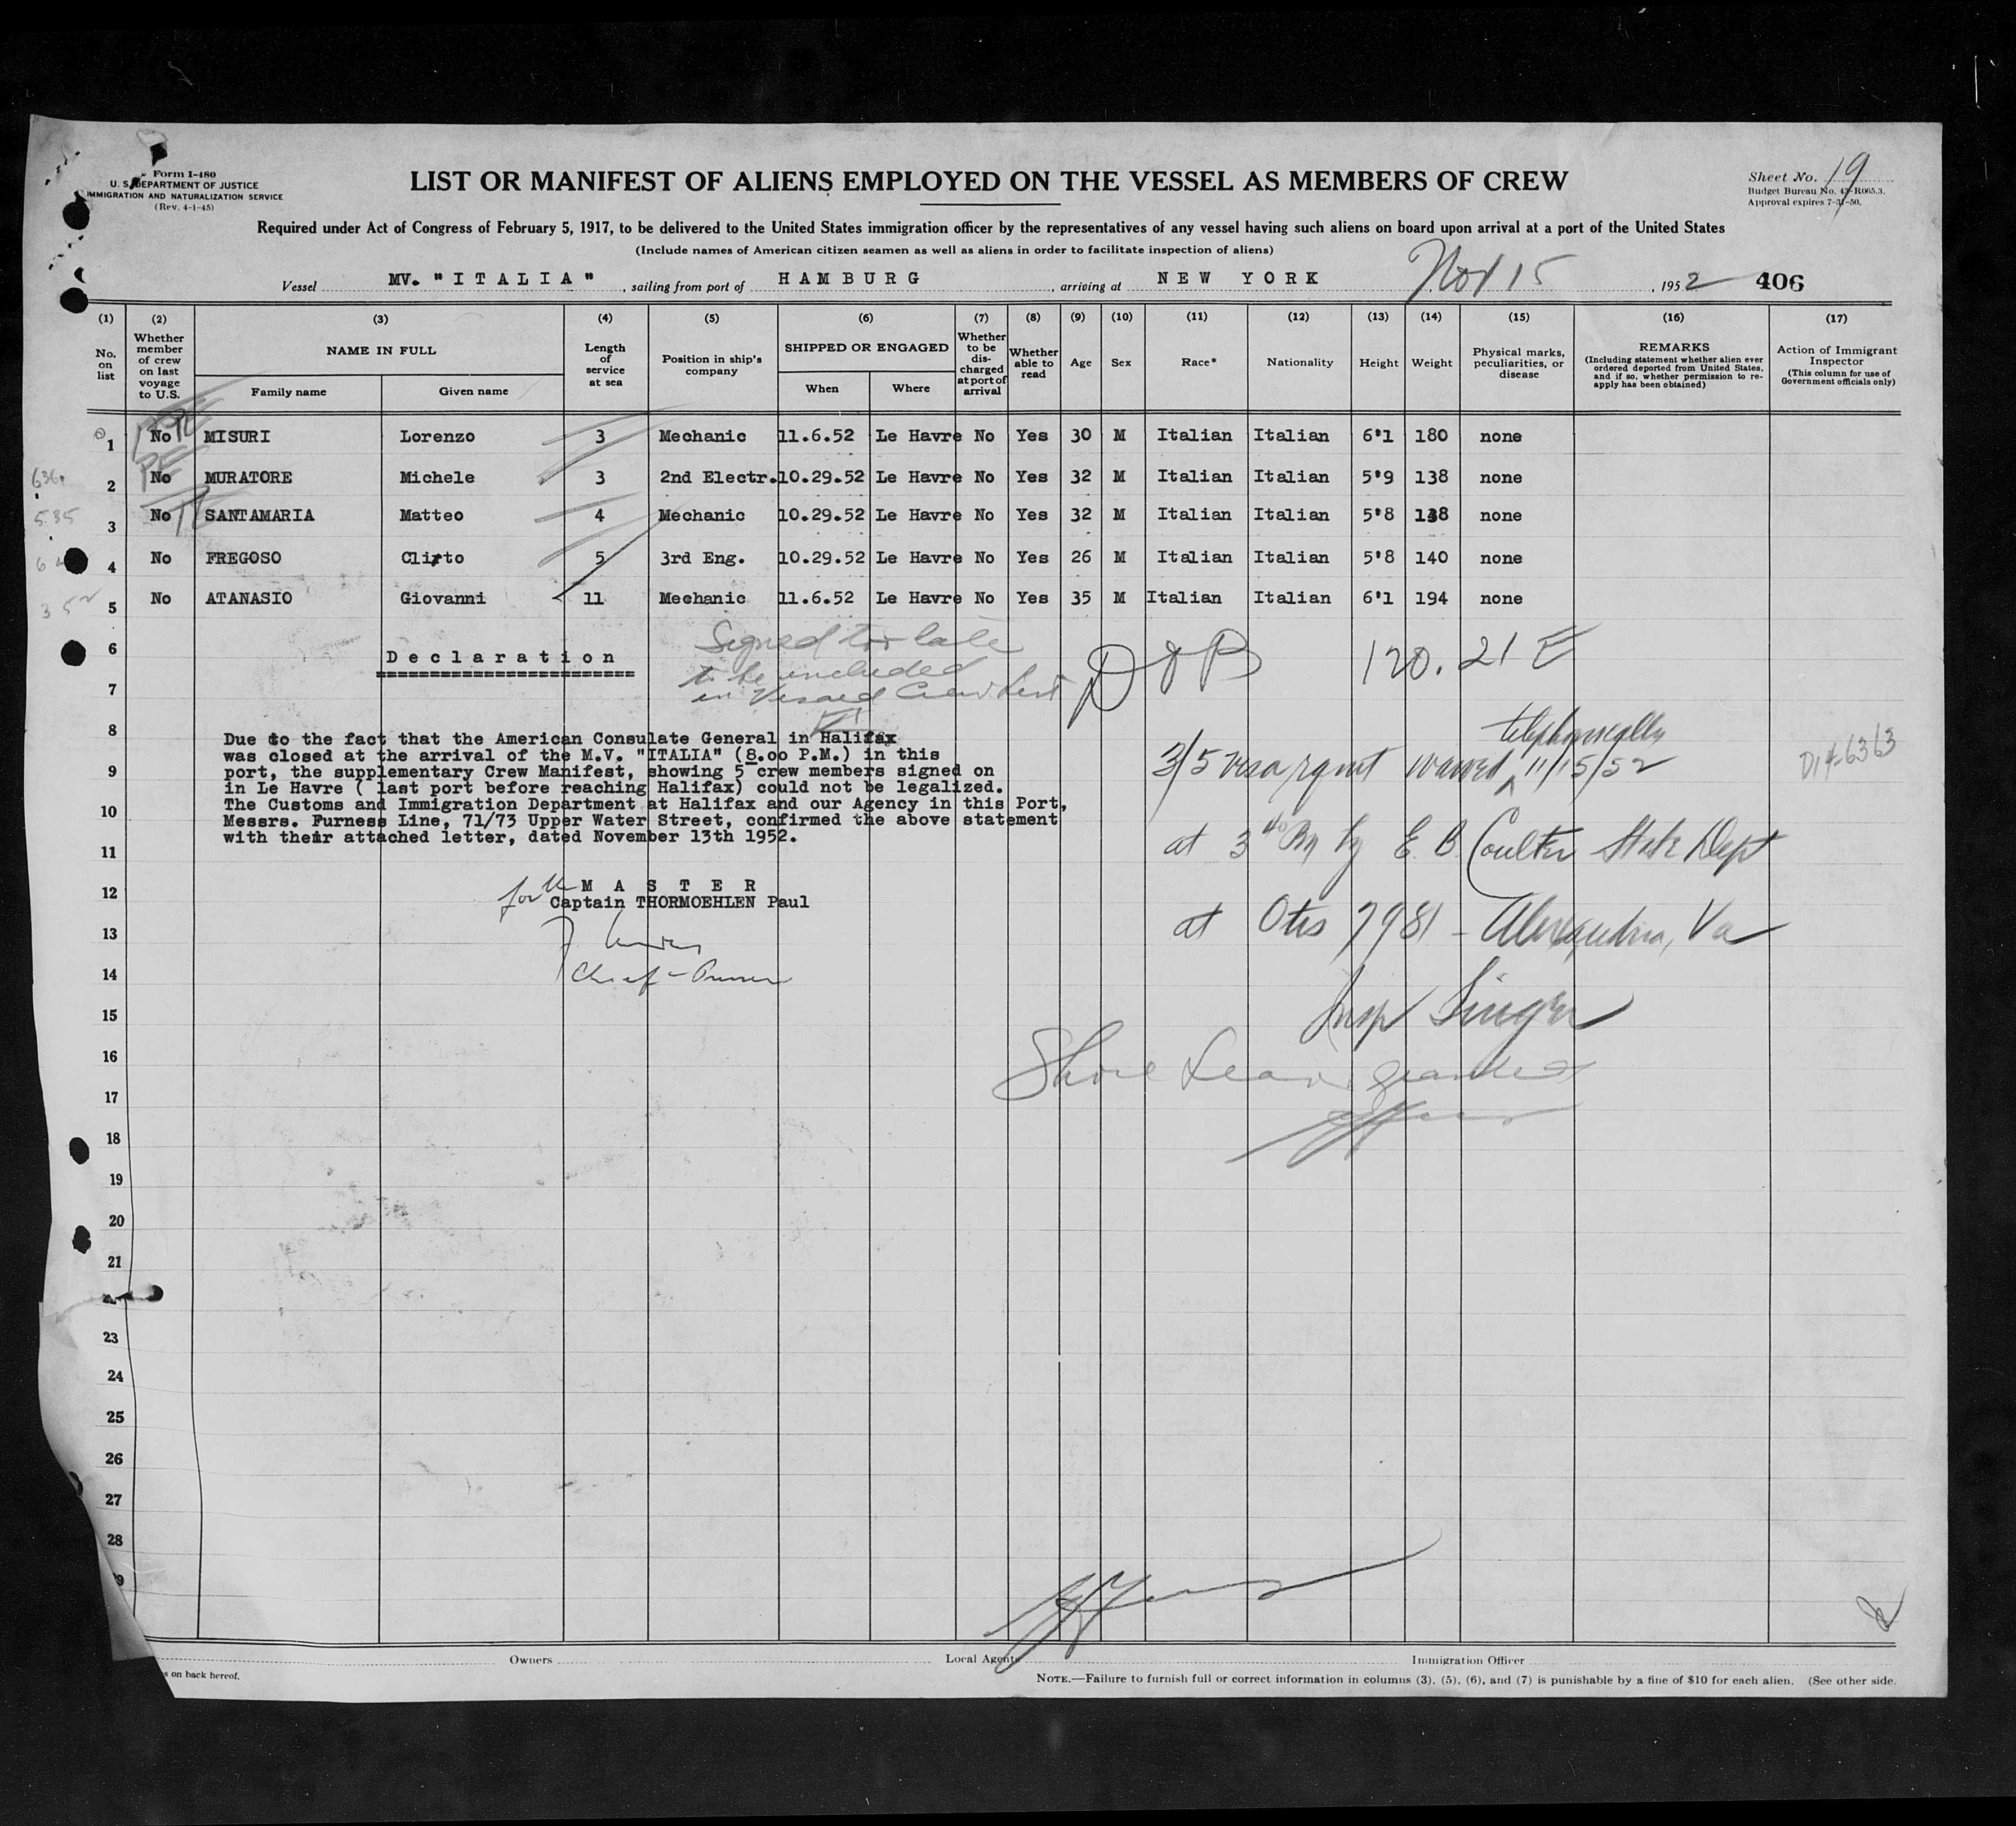 Form I-480
U. S. DEPARTMENT OF JUSTICE
IMMIGRATION AND NATURALIZATION SERVICE
(Rev. 4-1-45)
LIST OR MANIFEST OF ALIENS EMPLOYED ON THE VESSEL AS MEMBERS OF CREW
Sheet No. 19
Budget Bureau No. 43-R065.3.
Approval expires 7-31-50.
Required under Act of Congress of February 5, 1917, to be delivered to the United States immigration officer by the representatives of any vessel having such aliens on board upon arrival at a port of the United States
(Include names of American citizen seamen as well as aliens in order to facilitate inspection of aliens)
Vessel MV. "ITALIA", sailing from port of HAMBURG, arriving at NEW YORK Nov 15, 1952 406
(1) (2) (3) (4) (5) (6) (7) (8) (9) (10) (11) (12) (13) (14) (15) (16) (17)
No. on list
Whether member of crew on last voyage to U.S.
NAME IN FULL
Family name
Given name
Length of service at sea
Position in ship's company
SHIPPED OR ENGAGED
When
Where
Whether to be discharged at port of arrival
Whether able to read
Age
Sex
Race*
Nationality
Height
Weight
Physical marks, peculiarities, or disease
REMARKS
(Including statement whether alien ever ordered deported from United States, and if so, whether permission to reapply has been obtained)
Action of Immigrant Inspector
(This column for use of Government officials only)
1 No MISURI Lorenzo 3 Mechanic 11.6.52 Le Havre No Yes 30 M Italian Italian 6'1 180 none
2 No MURATORE Michele 3 2nd Electr. 10.29.52 Le Havre No Yes 32 M Italian Italian 5'9 138 none
3 No SANTAMARIA Matteo 4 Mechanic 10.29.52 Le Havre No Yes 32 M Italian Italian 5'8 138 none
4 No FREGOSO Clirto 5 3rd Eng. 10.29.52 Le Havre No Yes 26 M Italian Italian 5'8 140 none
5 No ATANASIO Giovanni 11 Mechanic 11.6.52 Le Havre No Yes 35 M Italian Italian 6'1 194 none
6
Declaration
Signed too late
to be included
in Visaed Crew List
120.21 E
7
8
Due to the fact that the American Consulate General in Halifax
was closed at the arrival of the M.V. "ITALIA" (8.oo P.M.) in this
port, the supplementary Crew Manifest, showing 5 crew members signed on
in Le Havre ( last port before reaching Halifax) could not be legalized.
The Customs and Immigration Department at Halifax and our Agency in this Port,
Messrs. Furness Line, 71/73 Upper Water Street, confirmed the above statement
with their attached letter, dated November 13th 1952.
telephonically
3/5 visa rqmt waived 11/15/52
D14-6363
at 3 40 Pm by E. B. Coulter State Dept
at Otis 7981 - Alexandria, Va
Insp Singer
9
10
11
12
for the MASTER
Captain THORMOEHLEN Paul
13
14
Chief-Purser
15
16
Shore Leave granted
17
18
19
20
21
23
24
25
26
27
28
Owners
Local Agents
Immigration Officer
on back hereof.
NOTE.—Failure to furnish full or correct information in columns (3), (5), (6), and (7) is punishable by a fine of $10 for each alien. (See other side.